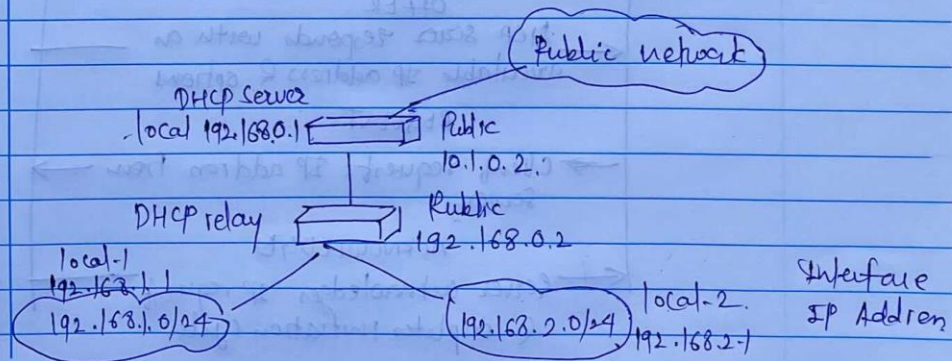 Public network
DHCP Server
local 192.168.0.1
Public
10.1.0.2.
DHCP relay
Public
192.168.0.2
local-1
192.168.1.1
192.168.1.0/24
192.168.2.0/24
local-2.
192.168.2.1
Interface
IP Addren